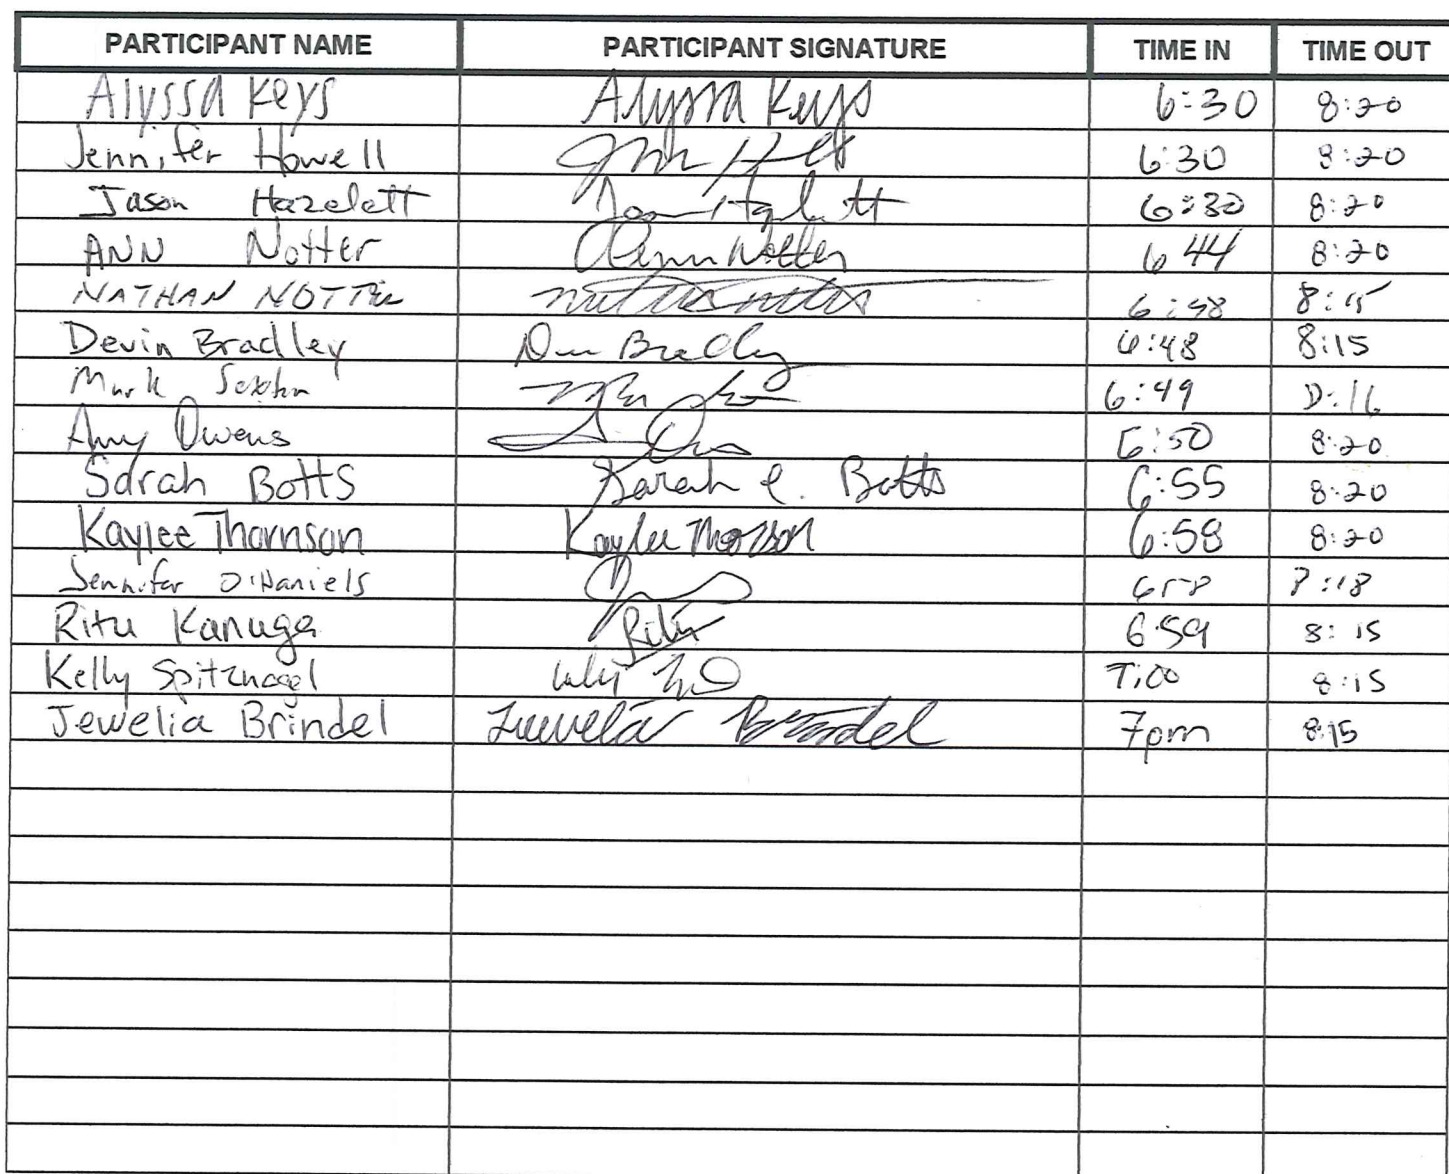 PARTICIPANT NAME PARTICIPANT SIGNATURE TIME IN TIME OUT
Alyssa Keys Alyssa Keys 6:30 8:20
Jennifer Howell 6:30 8:20
Jason Hazelett 6:30 8:20
ANN Notter Ann Notter 6 44 8:20
NATHAN NOTTER 8:15
Devin Bradley 6:48 8:15
Mark 6:49
Amy Owens 6:50 8:20
Sarah Botts Sarah e. Botts 6:55 8:20
Kaylee Thornson Kaylee 6:58 8:20
Jennifer O'Daniels 8:18
Ritu Kanuga Ritu 6:59 8:15
Kelly Spitznagel 7:00 8:15
Jewelia Brindel Jewelia Brindel 7pm 8:15